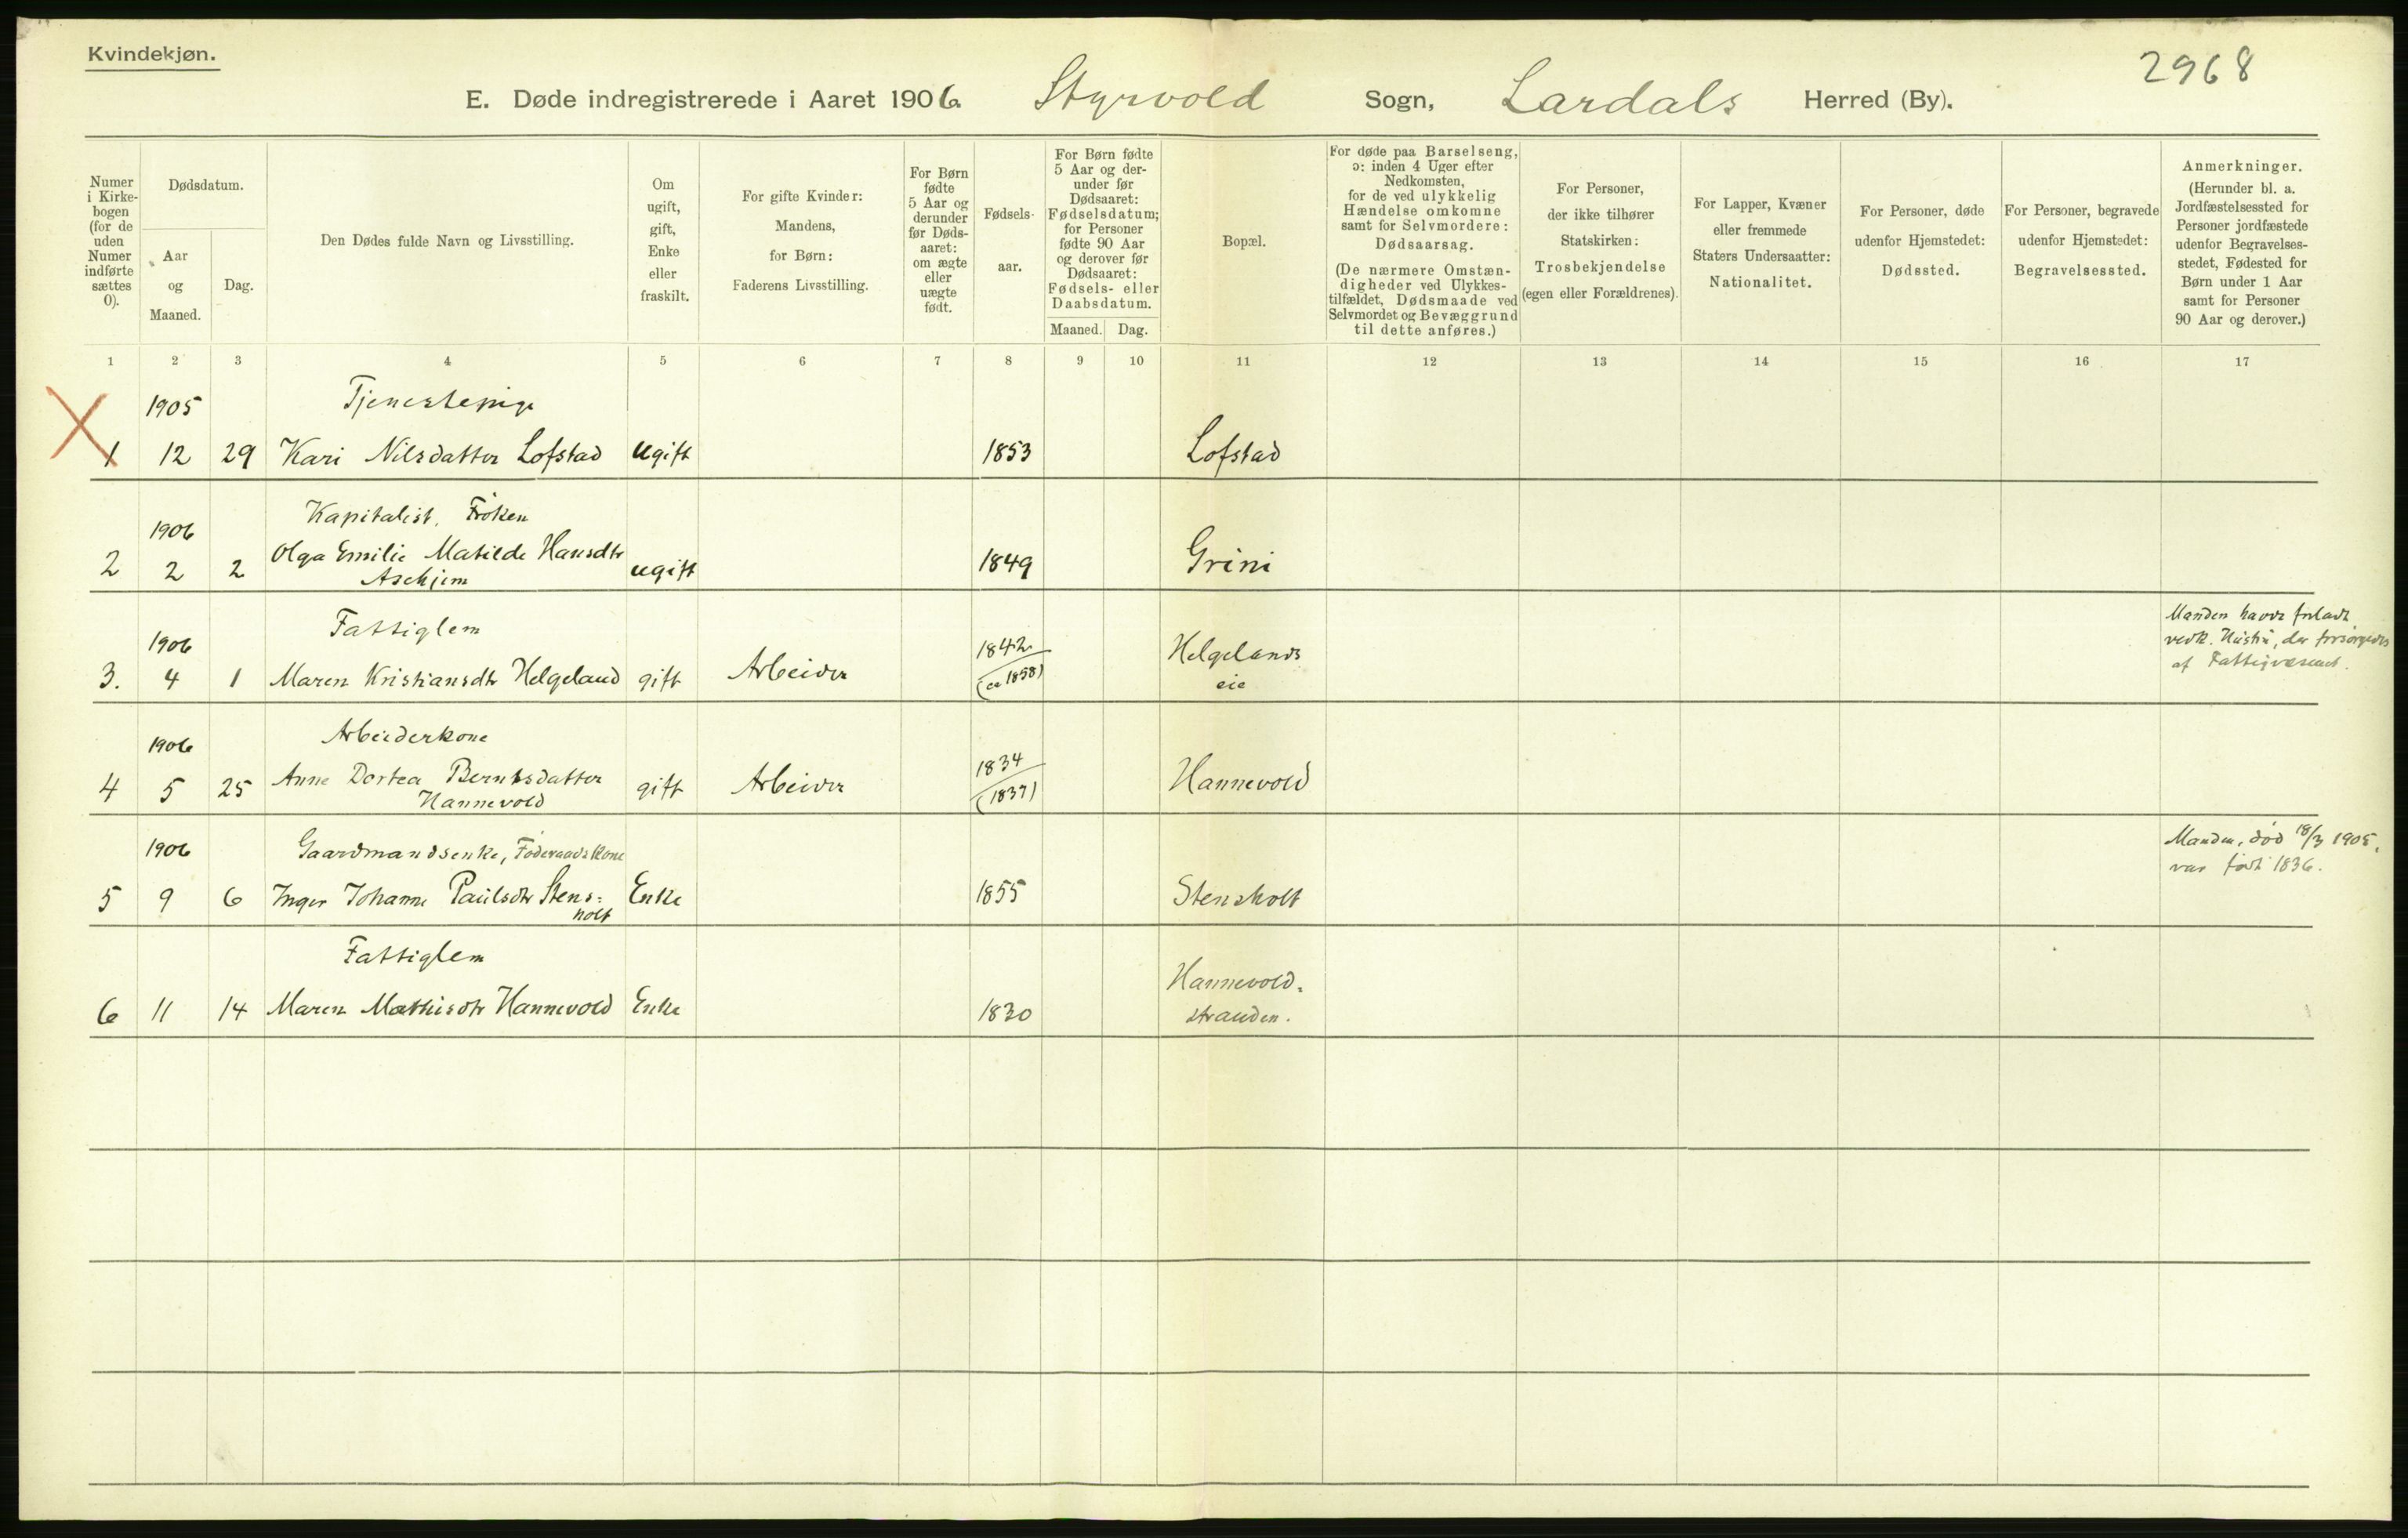 Kvindekjøn.
2968
E. Døde indregistrerede i Aaret 1906 Styrvold Sogn, Lardals Herred (By).
Numer i Kirke-bogen (for de uden Numer indførte sættes 0).
Dødsdatum.
Aar og Maaned.
Dag.
Den Dødes fulde Navn og Livsstilling.
Om ugift, gift, Enke eller fraskilt.
For gifte Kvinder: Mandens, for Børn: Faderens Livsstilling.
For Børn fødte 5 Aar og derunder før Døds-aaret: om ægte eller uægte født.
Fødsels-aar.
For Børn fødte 5 Aar og der-under før Dødsaaret: Fødselsdatum; for Personer fødte 90 Aar og derover før Dødsaaret: Fødsels- eller Daabsdatum.
Maaned. Dag.
Bopæl.
For døde paa Barselseng, ɔ: inden 4 Uger efter Nedkomsten, for de ved ulykkelig Hændelse omkomne samt for Selvmordere: Dødsaarsag. (De nærmere Omstæn-digheder ved Ulykkes-tilfældet, Dødsmaade ved Selvmordet og Bevæggrund til dette anføres.)
For Personer, der ikke tilhører Statskirken: Trosbekjendelse (egen eller Forældrenes).
For Lapper, Kvæner eller fremmede Staters Undersaatter: Nationalitet.
For Personer, døde udenfor Hjemstedet: Dødssted.
For Personer, begravede udenfor Hjemstedet: Begravelsessted.
Anmerkninger. (Herunder bl. a. Jordfæstelsessted for Personer jordfæstede udenfor Begravelses-stedet, Fødested for Børn under 1 Aar samt for Personer 90 Aar og derover.)
1 2 3 4 5 6 7 8 9 10 11 12 13 14 15 16 17
1905 Tjenestepige
1 12 29 Kari Nilsdatter Lofstad Ugift 1853 Lofstad
1906 Kapitalist, Frøken
2 2 2 Olga Emilie Matilde Hansdtr ugift 1849 Grini
Askjem
1906 Fattiglem 1842 Helgelands Manden havde forladt
vedk. Hustru, der forsørgedes
3. 4 1 Maren Kristiansdtr Helgeland gift Arbeider (ca 1858) eie af Fattigvæsenet.
1906 Arbeiderkone 1834
4 5 25 Anne Dortea Berntsdatter gift Arbeider (1837) Hannevold
Hannevold
1906 Gaardmandsenke, Føderaadskone Manden, død 18/3 1905,
var født 1836.
5 9 6 Inger Johanne Paulsdtr Stens= Enke 1855 Stensholt
holt
Fattiglem Hannevold=
6 11 14 Maren Mathisdtr Hannevold Enke 1830 stranden.